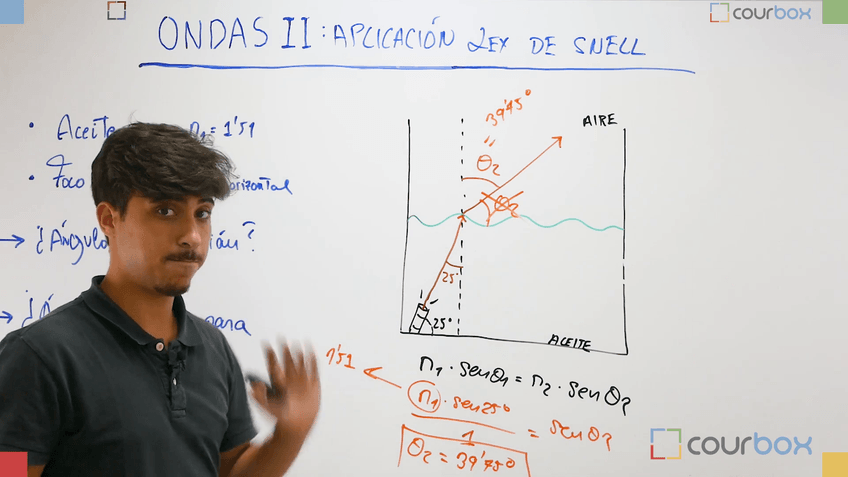 courbox
ONDAS II: APLICACIÓN LEY DE SNELL
• Aceite n₁ = 1'51
• Foco horizontal
→ ¿Ángulo ?
→ para
39'75°
"
θ₂
AIRE
θ₂
25°
25°
ACEITE
n₁ · senθ₁ = n₂ · senθ₂
1'51 ← n₁ · sen25° = senθ₂
1
θ₂ = 39'75°
courbox